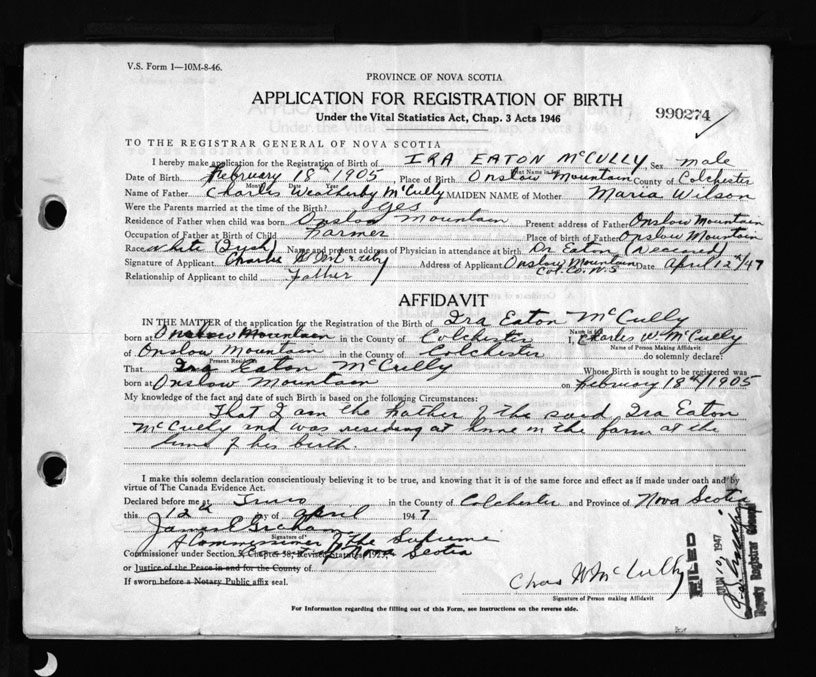 V.S. Form 1—10M-8-46.
PROVINCE OF NOVA SCOTIA
APPLICATION FOR REGISTRATION OF BIRTH
Under the Vital Statistics Act, Chap. 3 Acts 1946
990274
TO THE REGISTRAR GENERAL OF NOVA SCOTIA
I hereby make application for the Registration of Birth of IRA EATON McCULLY, Sex male
Date of Birth February 18th 1905, Place of Birth Onslow Mountain County of Colchester
Month Date Year
Name of Father Charles Weatherby McCully MAIDEN NAME of Mother Maria Wilson
Were the Parents married at the time of the Birth? yes
Residence of Father when child was born Onslow Mountain Present address of Father Onslow Mountain
Occupation of Father at Birth of Child Farmer Place of birth of Father Onslow Mountain
Race White (Irish) Name and present address of Physician in attendance at birth Dr Eaton (Deceased)
Signature of Applicant Charles W McCully Address of Applicant Onslow Mountain Col. Co. N.S Date April 12th/47
Relationship of Applicant to child Father
AFFIDAVIT
IN THE MATTER of the application for the Registration of the Birth of Ira Eaton McCully
born at Onslow Mountain in the County of Colchester I, Charles W McCully
Name of Person Making Affidavit
of Onslow Mountain in the County of Colchester do solemnly declare:
Present Residence
That Ira Eaton McCully Whose Birth is sought to be registered was
born at Onslow Mountain on February 18th/1905
My knowledge of the fact and date of such Birth is based on the following Circumstances:
That I am the Father of the said Ira Eaton
McCully and was residing at home on the farm at the
time of his birth.
I make this solemn declaration conscientiously believing it to be true, and knowing that it is of the same force and effect as if made under oath and by
virtue of The Canada Evidence Act.
Declared before me at Truro in the County of Colchester and Province of Nova Scotia
this 12th day of April 1947
James E Graham
Signature of
A Commissioner of the Supreme
Court of Nova Scotia
Commissioner under Section 5, Chapter 38, Revised Statutes, 1923,
or Justice of the Peace in and for the County of
If sworn before a Notary Public affix seal.
Chas W McCully
Signature of Person making Affidavit
FILED
JUN 10 1947
Deputy Registrar General
For Information regarding the filling out of this Form, see instructions on the reverse side.